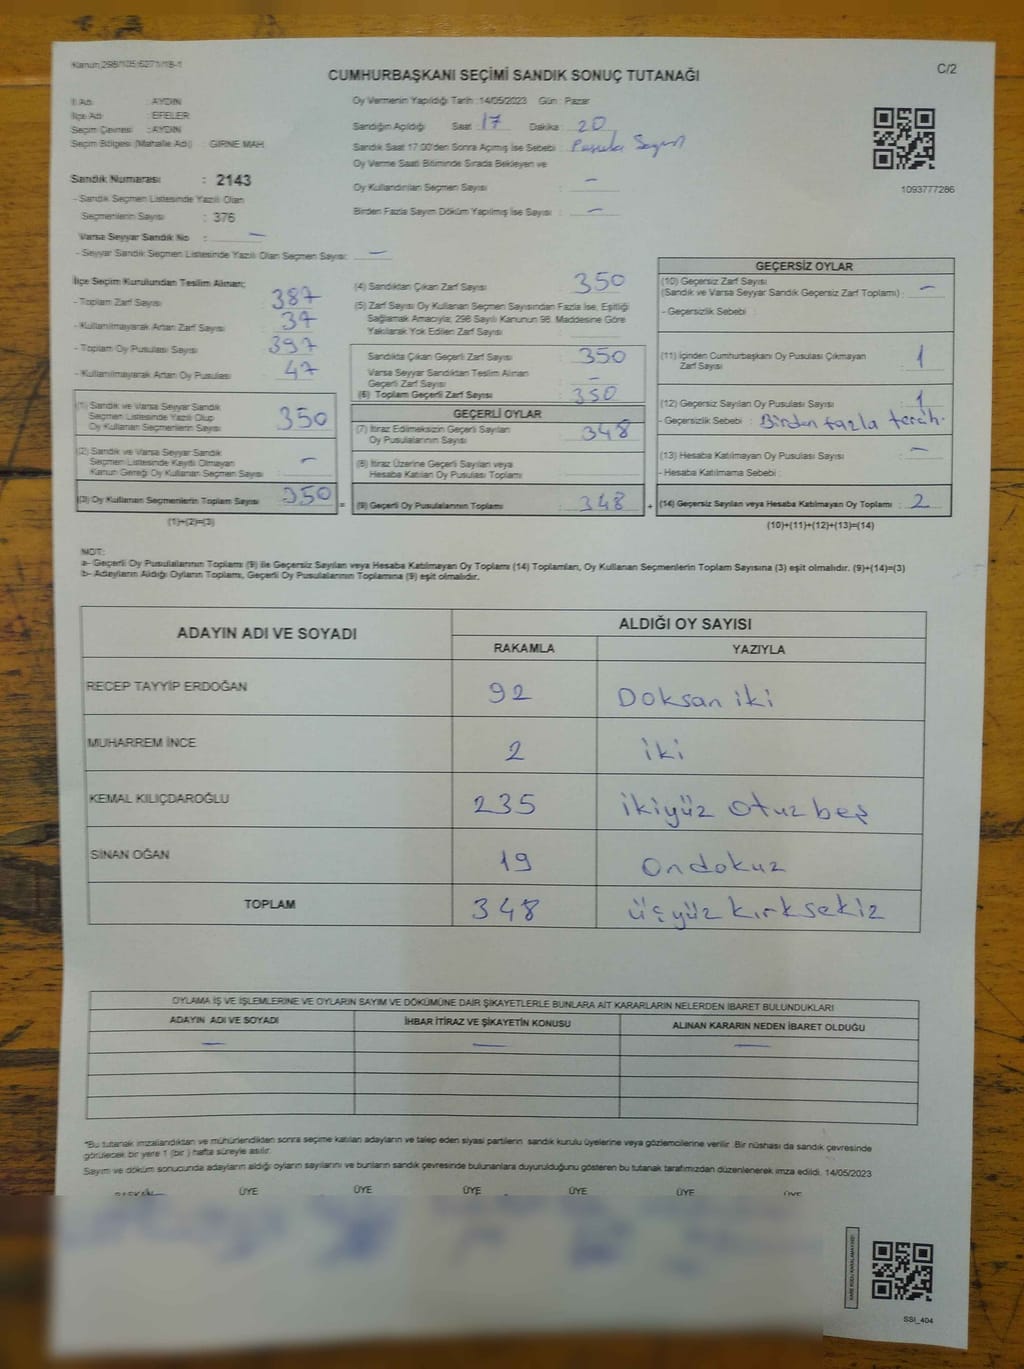 Kanun:298/105;6271/18-1
C/2
CUMHURBAŞKANI SEÇİMİ SANDIK SONUÇ TUTANAĞI
İl Adı : AYDIN
İlçe Adı : EFELER
Seçim Çevresi : AYDIN
Seçim Bölgesi (Mahalle Adı) : GİRNE MAH.
Sandık Numarası : 2143
- Sandık Seçmen Listesinde Yazılı Olan
Seçmenlerin Sayısı : 376
Varsa Seyyar Sandık No : —
- Seyyar Sandık Seçmen Listesinde Yazılı Olan Seçmen Sayısı: —
Oy Vermenin Yapıldığı Tarih :14/05/2023 Gün : Pazar
Sandığın Açıldığı Saat : 17 Dakika : 20
Sandık Saat 17.00'den Sonra Açılmış İse Sebebi : Pusula Sayım
Oy Verme Saati Bitiminde Sırada Bekleyen ve
Oy Kullandırılan Seçmen Sayısı : —
Birden Fazla Sayım Döküm Yapılmış İse Sayısı : —
1093777286
İlçe Seçim Kurulundan Teslim Alınan;
- Toplam Zarf Sayısı : 387
- Kullanılmayarak Artan Zarf Sayısı : 37
- Toplam Oy Pusulası Sayısı : 397
- Kullanılmayarak Artan Oy Pusulası : 47
(1) Sandık ve Varsa Seyyar Sandık
Seçmen Listesinde Yazılı Olup
Oy Kullanan Seçmenlerin Sayısı : 350
(2) Sandık ve Varsa Seyyar Sandık
Seçmen Listesinde Kaydı Olmayan
Kanun Gereği Oy Kullanan Seçmen Sayısı : —
(3) Oy Kullanan Seçmenlerin Toplam Sayısı : 350 =
(1)+(2)=(3)
(4) Sandıktan Çıkan Zarf Sayısı : 350
(5) Zarf Sayısı Oy Kullanan Seçmen Sayısından Fazla İse, Eşitliği
Sağlamak Amacıyla; 298 Sayılı Kanunun 98. Maddesine Göre
Yakılarak Yok Edilen Zarf Sayısı :
Sandıkta Çıkan Geçerli Zarf Sayısı : 350
Varsa Seyyar Sandıktan Teslim Alınan
Geçerli Zarf Sayısı : —
(6) Toplam Geçerli Zarf Sayısı : 350
GEÇERLİ OYLAR
(7) İtiraz Edilmeksizin Geçerli Sayılan
Oy Pusulalarının Sayısı : 348
(8) İtiraz Üzerine Geçerli Sayılan veya
Hesaba Katılan Oy Pusulası Toplamı :
(9) Geçerli Oy Pusulalarının Toplamı : 348 +
GEÇERSİZ OYLAR
(10) Geçersiz Zarf Sayısı
(Sandık ve Varsa Seyyar Sandık Geçersiz Zarf Toplamı) : —
- Geçersizlik Sebebi :
(11) İçinden Cumhurbaşkanı Oy Pusulası Çıkmayan
Zarf Sayısı : 1
(12) Geçersiz Sayılan Oy Pusulası Sayısı : 1
- Geçersizlik Sebebi : Birden fazla tercih.
(13) Hesaba Katılmayan Oy Pusulası Sayısı : —
- Hesaba Katılmama Sebebi :
(14) Geçersiz Sayılan veya Hesaba Katılmayan Oy Toplamı : 2
(10)+(11)+(12)+(13)=(14)
NOT:
a- Geçerli Oy Pusulalarının Toplamı (9) ile Geçersiz Sayılan veya Hesaba Katılmayan Oy Toplamı (14) Toplamları, Oy Kullanan Seçmenlerin Toplam Sayısına (3) eşit olmalıdır. (9)+(14)=(3)
b- Adayların Aldığı Oyların Toplamı, Geçerli Oy Pusulalarının Toplamına (9) eşit olmalıdır.
ADAYIN ADI VE SOYADI
ALDIĞI OY SAYISI
RAKAMLA YAZIYLA
RECEP TAYYİP ERDOĞAN 92 Doksan iki
MUHARREM İNCE 2 iki
KEMAL KILIÇDAROĞLU 235 ikiyüz otuz beş
SİNAN OĞAN 19 Ondokuz
TOPLAM 348 üçyüz kırksekiz
OYLAMA İŞ VE İŞLEMLERİNE VE OYLARIN SAYIM VE DÖKÜMÜNE DAİR ŞİKAYETLERLE BUNLARA AİT KARARLARIN NELERDEN İBARET BULUNDUKLARI
ADAYIN ADI VE SOYADI İHBAR İTİRAZ VE ŞİKAYETİN KONUSU ALINAN KARARIN NEDEN İBARET OLDUĞU
— — —
*Bu tutanak imzalandıktan ve mühürlendikten sonra seçime katılan adayların ve talep eden siyasi partilerin sandık kurulu üyelerine veya gözlemcilerine verilir. Bir nüshası da sandık çevresinde
görülecek bir yere 1 (bir) hafta süreyle asılır.
Sayım ve döküm sonucunda adayların aldığı oyların sayılarını ve bunların sandık çevresinde bulunanlara duyurulduğunu gösteren bu tutanak tarafımızdan düzenlenerek imza edildi. 14/05/2023
BAŞKAN ÜYE ÜYE ÜYE ÜYE ÜYE ÜYE
SSİ_404